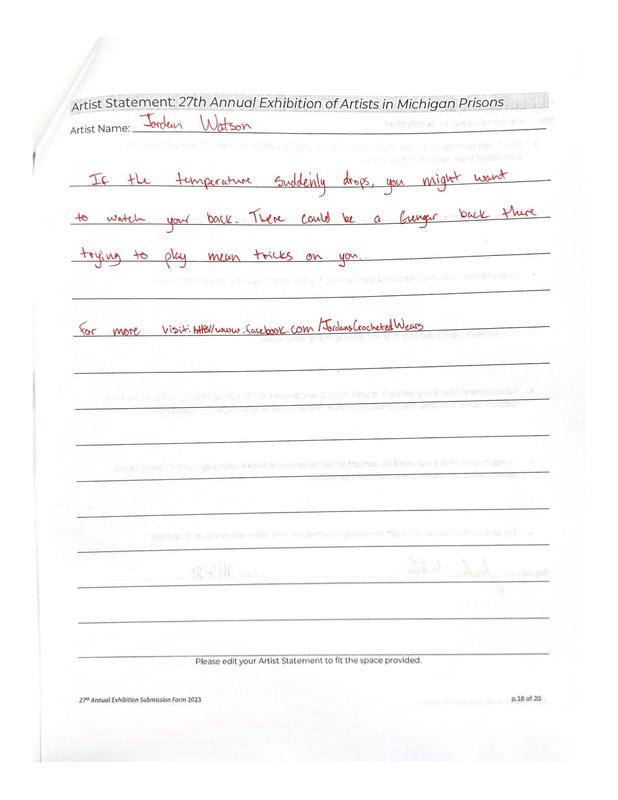 Artist Statement: 27th Annual Exhibition of Artists in Michigan Prisons
Artist Name: Jordan Watson
If the temperature suddenly drops, you might want
to watch your back. There could be a Gengar back there
trying to play mean tricks on you.
For more visit: http://www.facebook.com/JordansCrochetedWears
Please edit your Artist Statement to fit the space provided.
27th Annual Exhibition Submission Form 2023
p.18 of 20